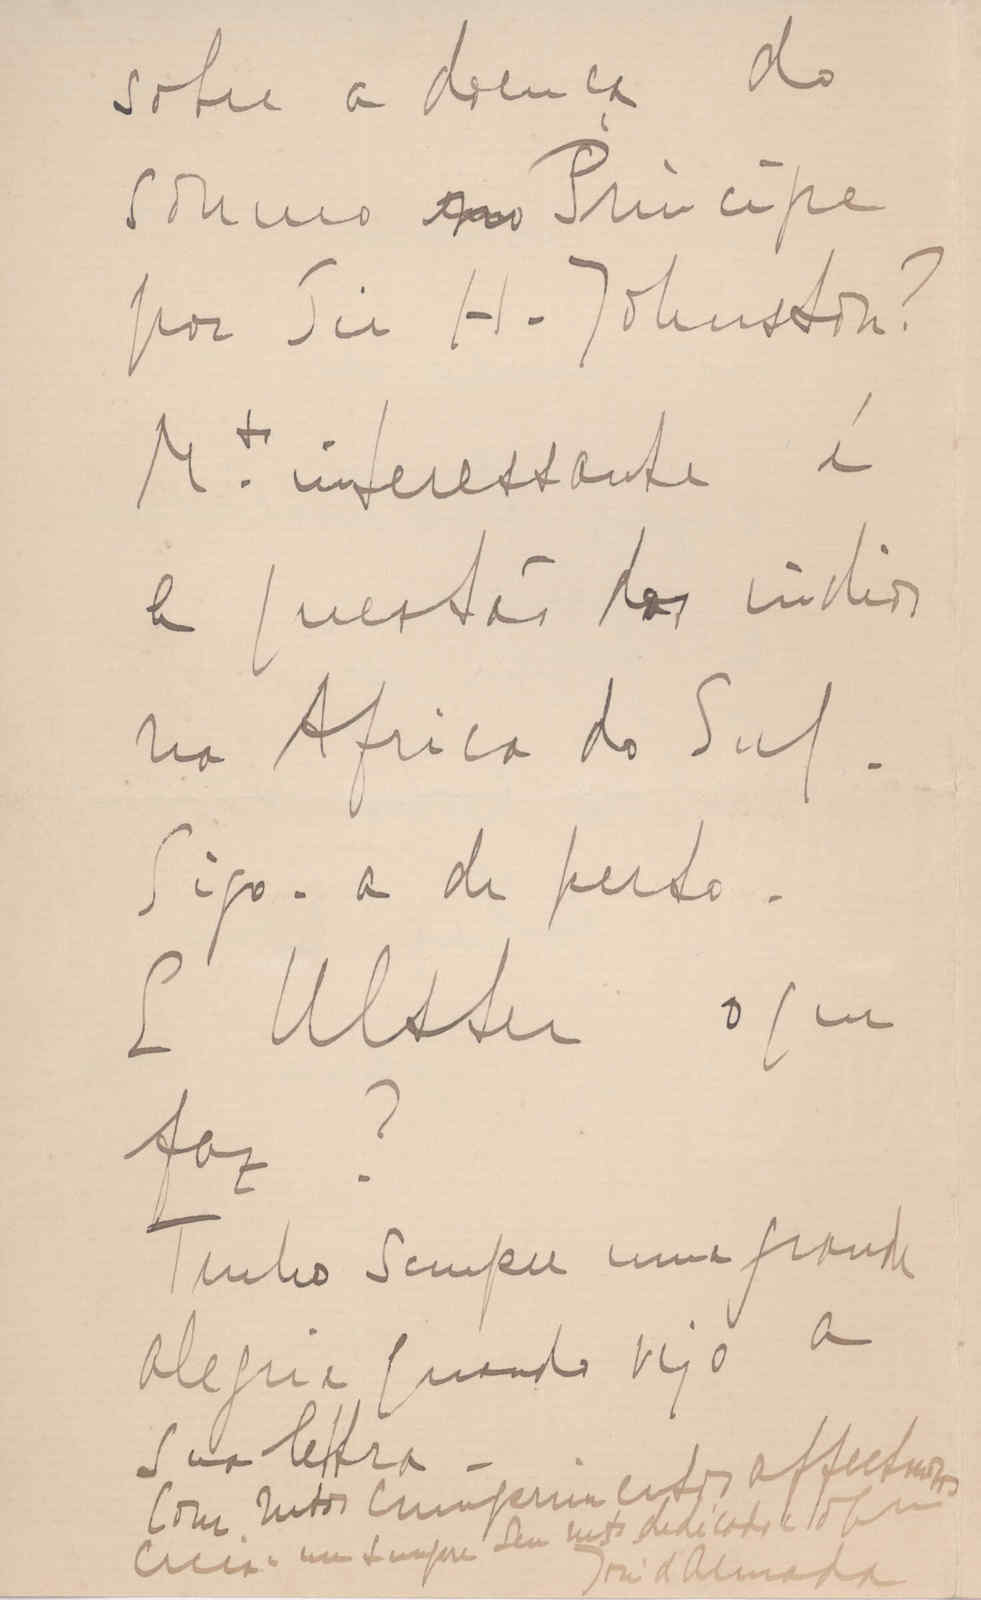 sobre a doença do
somno no Principe
por Sir H. Johnston?
M.to interessante é
a questão dos indios
na Africa do Sul.
Sigo-a de perto.
E Ulster o que
faz?
Tenho sempre uma grande
alegria quando vejo a
sua lettra -
Com mtos cumprimentos affectuosos
creia-me sempre seu mto dedicado e
José d'Almada